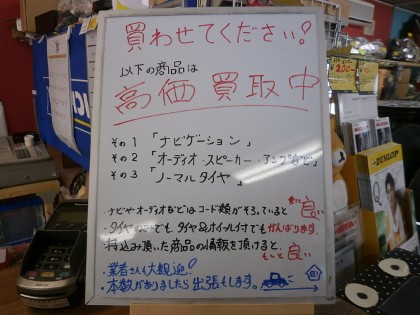 買わせてください!
以下の商品は
高価買取中
その1 「ナビゲーション」
その2 「オーディオ・スピーカー・アンプなど」
その3 「ノーマルタイヤ」
ナビやオーディオなどはコード類がそろっていると 良い
・タイヤ でも、タイヤ&ホイール付でもがんばります。
持込み頂いた商品の情報を頂けると、も〜と 良い
・業者さんも大歓迎!
・本数がありましたら出張もします。
DUNLOP